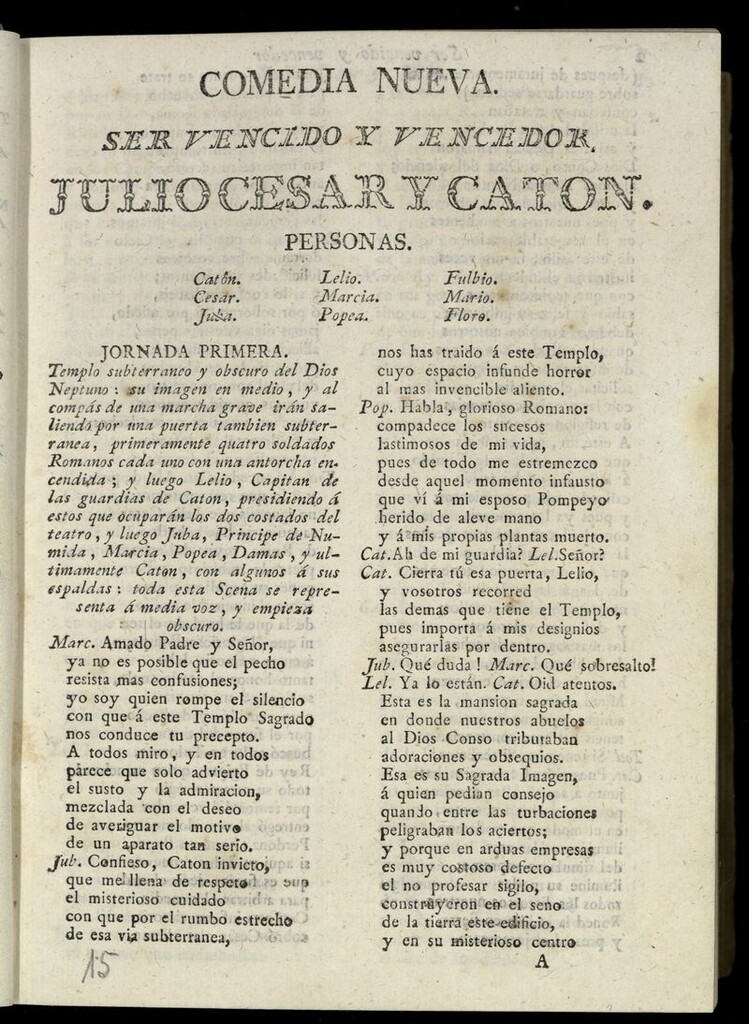 COMEDIA NUEVA.
SER VENCIDO Y VENCEDOR,
JULIO CESAR Y CATON.
PERSONAS.
Catón. Lelio. Fulbio.
Cesar. Marcia. Mario.
Juba. Popea. Floro.
JORNADA PRIMERA.
Templo subterraneo y obscuro del Dios
Neptuno: su imagen en medio, y al
compás de una marcha grave irán sa-
liendo por una puerta tambien subter-
ranea, primeramente quatro soldados
Romanos cada uno con una antorcha en-
cendida; y luego Lelio, Capitan de
las guardias de Caton, presidiendo á
estos que ocuparán los dos costados del
teatro, y luego Juba, Principe de Nu-
mida, Marcia, Popea, Damas, y ul-
timamente Caton, con algunos á sus
espaldas: toda esta Scena se repre-
senta á media voz, y empieza
obscuro.
Marc. Amado Padre y Señor,
ya no es posible que el pecho
resista mas confusiones;
yo soy quien rompe el silencio
con que á este Templo Sagrado
nos conduce tu precepto.
A todos miro, y en todos
parece que solo advierto
el susto y la admiracion,
mezclada con el deseo
de averiguar el motivo
de un aparato tan serio.
Jub. Confieso, Caton invicto,
que me llena de respeto
el misterioso cuidado
con que por el rumbo estrecho
de esa via subterranea,
nos has traido á este Templo,
cuyo espacio infunde horror
al mas invencible aliento.
Pop. Habla, glorioso Romano:
compadece los sucesos
lastimosos de mi vida,
pues de todo me estremezco
desde aquel momento infausto
que ví á mi esposo Pompeyo
herido de aleve mano
y á mis propias plantas muerto.
Cat. Ah de mi guardia? Lel. Señor?
Cat. Cierra tú esa puerta, Lelio,
y vosotros recorred
las demas que tiene el Templo,
pues importa á mis designios
asegurarlas por dentro.
Jub. Qué duda! Marc. Qué sobresalto!
Lel. Ya lo están. Cat. Oid atentos.
Esta es la mansion sagrada
en donde nuestros abuelos
al Dios Conso tributaban
adoraciones y obsequios.
Esa es su Sagrada Imagen,
á quien pedian consejo
quando entre las turbaciones
peligraban los aciertos;
y porque en arduas empresas
es muy costoso defecto
el no profesar sigilo,
construyeron en el seno
de la tierra este edificio,
y en su misterioso centro
A
15